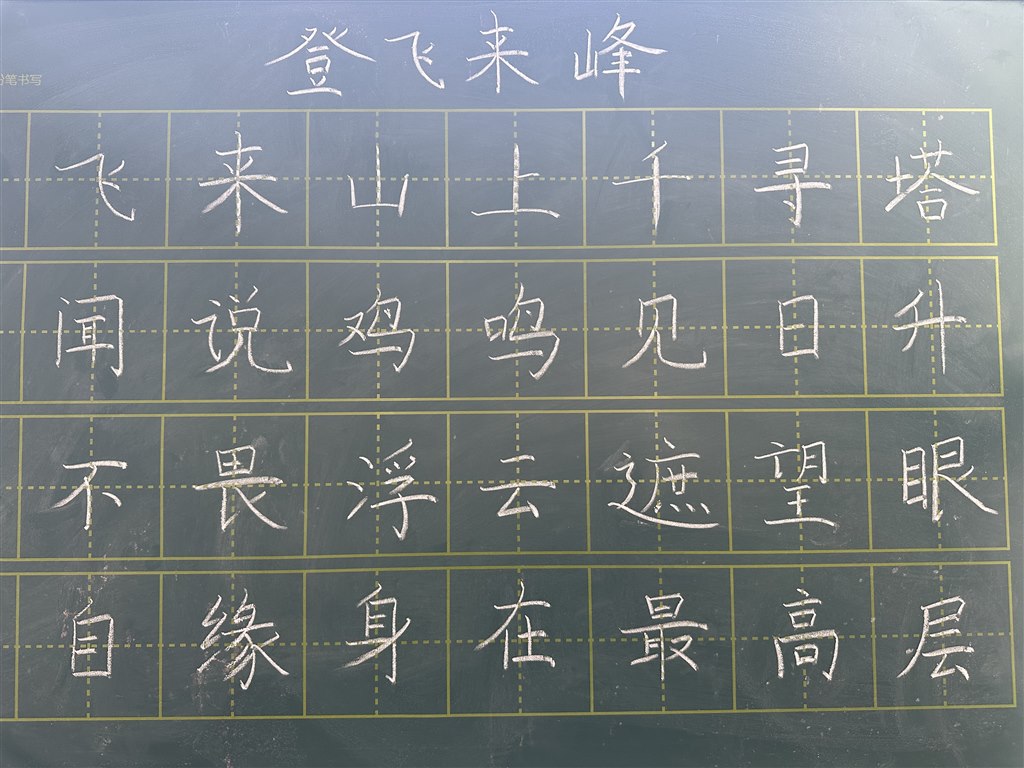 登飞来峰
粉笔书写
飞来山上千寻塔
闻说鸡鸣见日升
不畏浮云遮望眼
自缘身在最高层